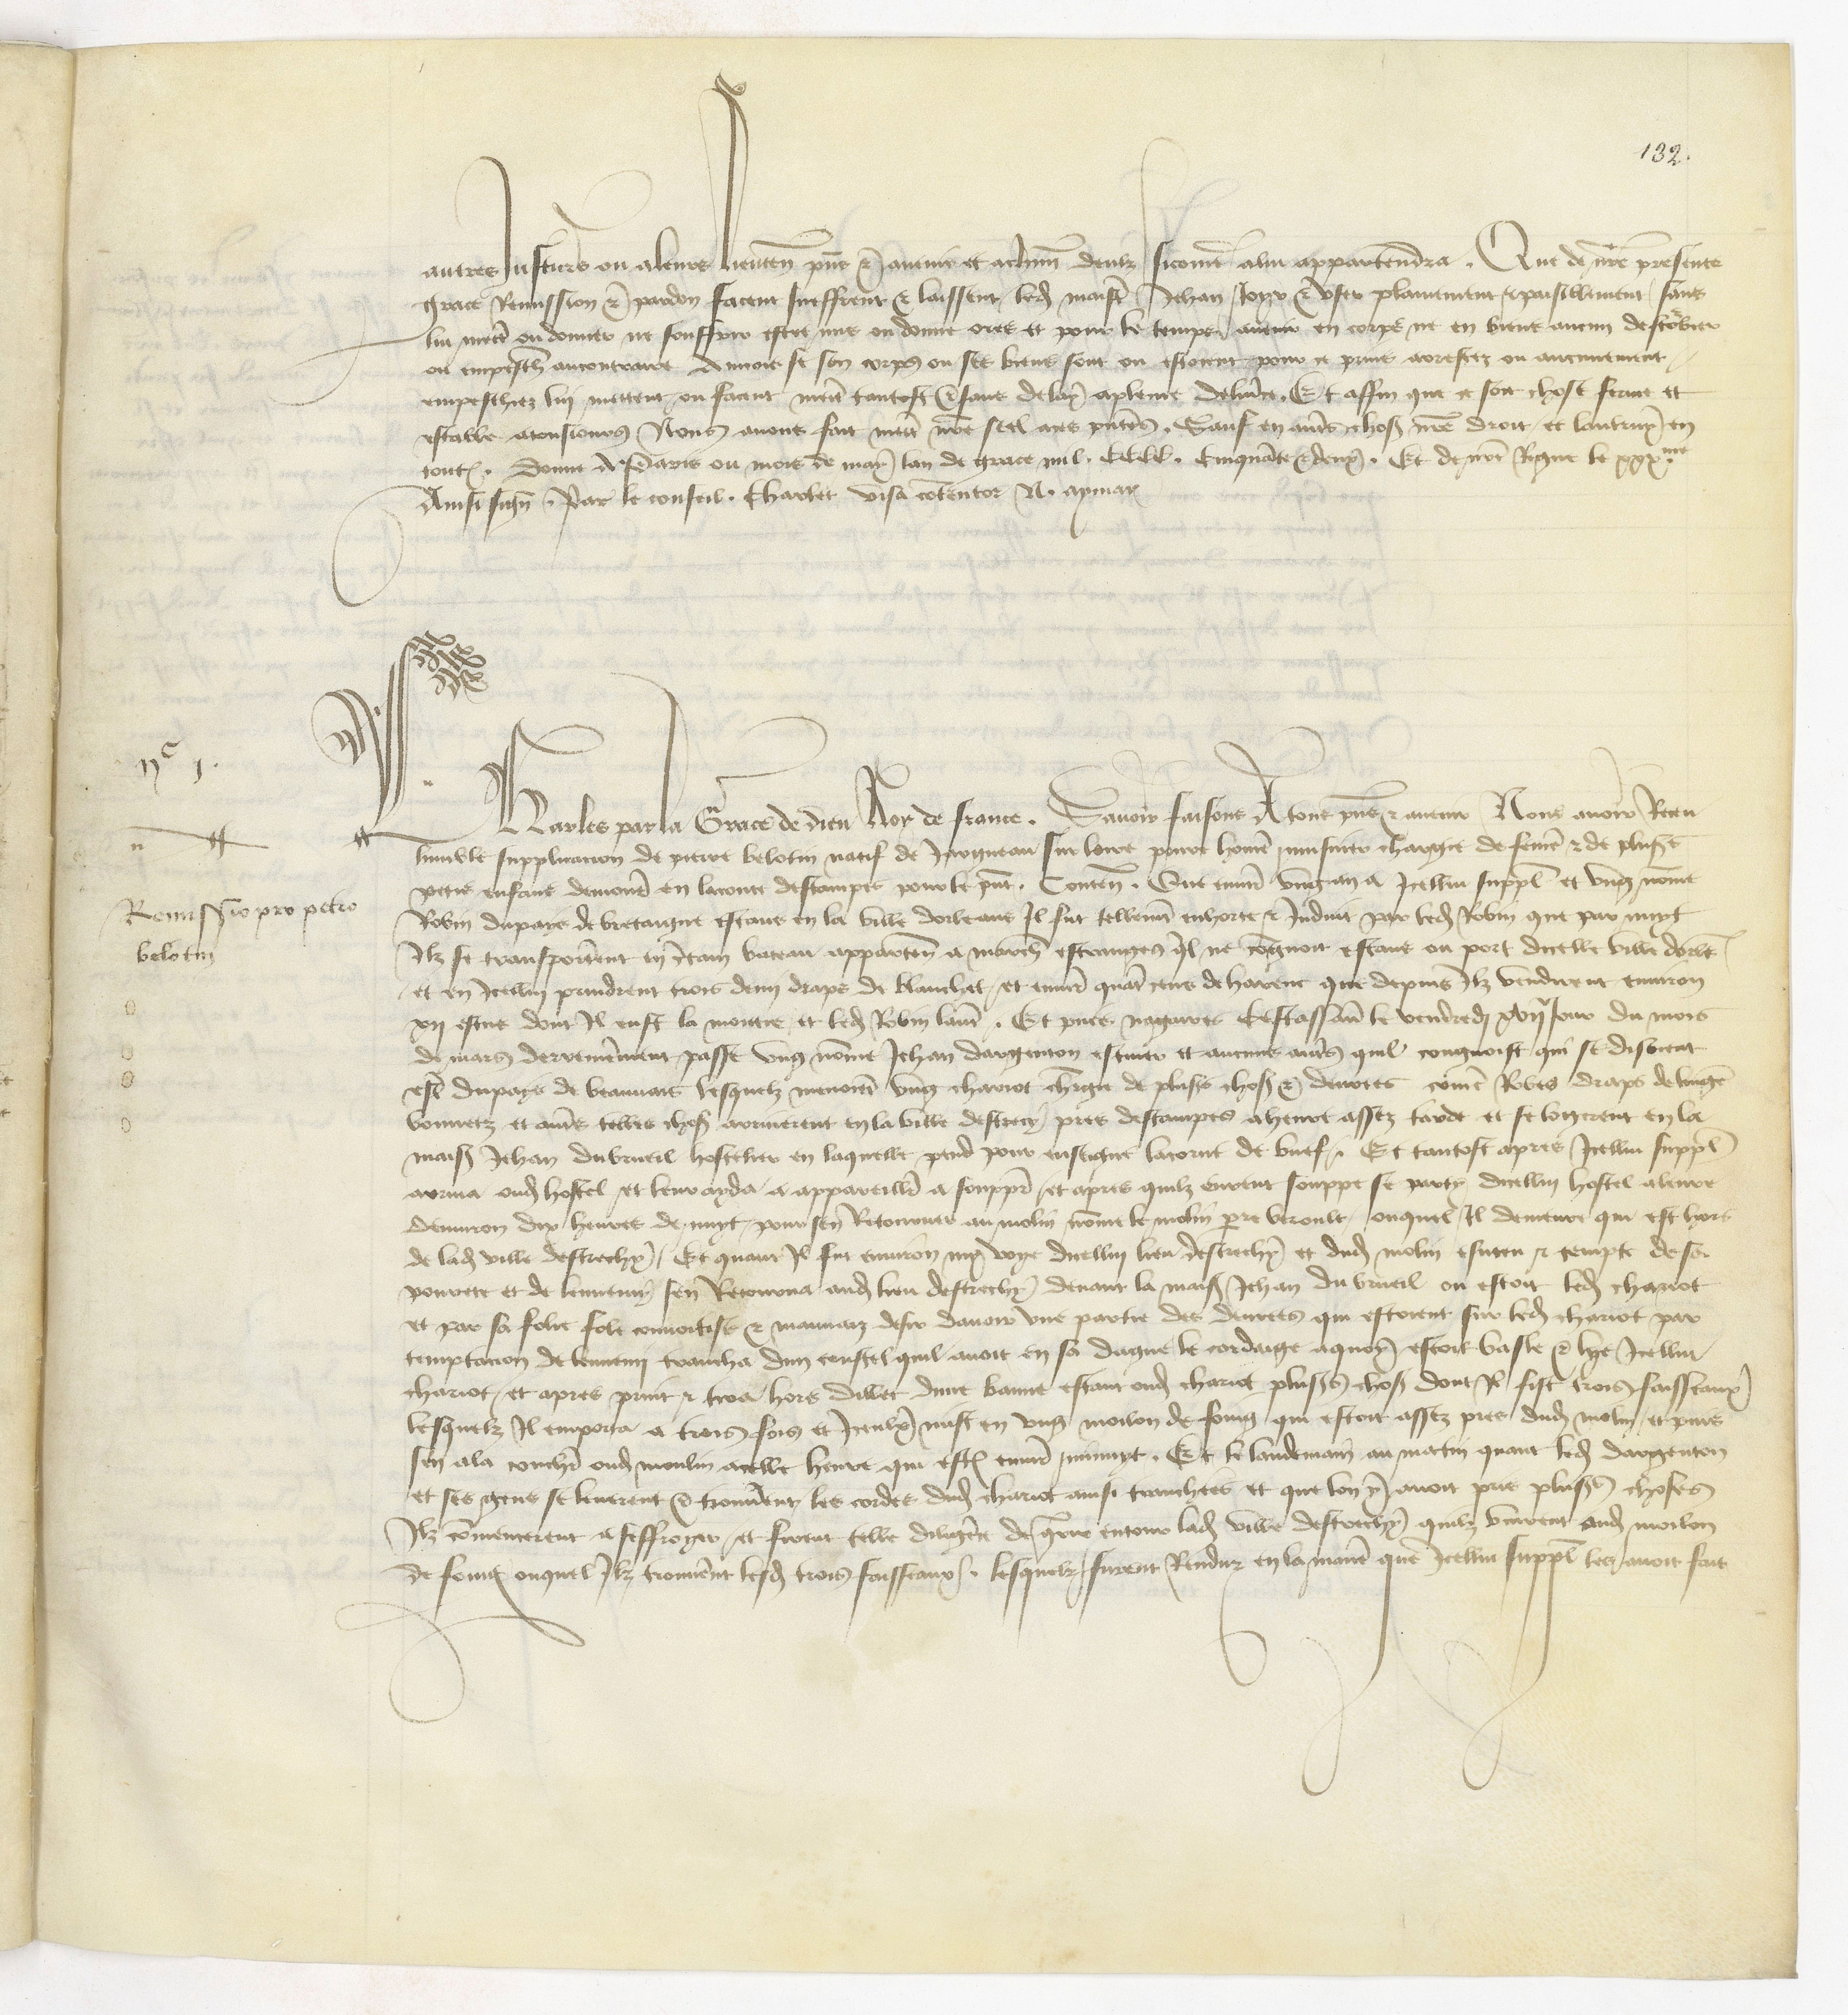 132.
autres justiciers ou a leurs lieuxten pñs & avenir et a chũn deulx sicom̃e a lui appartendra. Que de nr̃e presente
grace Remission & pardon facent sueffrent & laissent led maistr̃ Jehan Joyr & user plainement & paisiblement sans
lui mettr̃ ou donner ne souffrir estre mis ou donne ores et pour le temps avenir en corps ne en biens aucun destõbier
ou empeschr̃ au contraire Aincois se son corps ou ses biens sont ou estoient pour ce prins arrestez ou aucunement
empeschiez lui mettent ou facent mettr̃ tantost & sans delay a plaine deliũrce. Et affin que ce soit chose ferme et
estable a tousiours Nous avons fait mettr̃ nr̃e seel a ces p̃ntes. Sauf en autr̃s choses nr̃e droit et lautruy en
toutes. Donne a Paris ou mois de may lan de grace mil. CCCC. Cinquãte & deux. Et de nr̃e Regne le xxxme
Ainsi sign̄. Par le conseil. Charlet visa cõtentor N. aymar
ijc j.
Charles par la Grace de dieu Roy de france. Savoir faisons A tous pñs & avenir Nous avoir Receu
lumble supplicacion de pierre belotin natif de Jargueau sur loire povre hom̃e menusier chargie de fem̃e & de plusrs̃
petis enfans demourã en la conte destampes pour le p̃nt. Conten̄. Que envirõ ung an a Icellui suppl̃ et ung nom̃e
Remissio pro petro
belotin
Robin du pais de bretaigne estans en la ville dorleans Il fut tellemẽt enhorte & Induit par led Robin que par nuyt
Ilz se transportẽrent en cẽrtain bateau apparten̄ a march̃ estranges qĩl ne cõgnoit estans ou port dicelle ville dorlẽ
et en Icellui prindrent trois demy draps de blanchet et envirõ quatr̃ cens de harenc que depuis Ilz vendirent environ
xij escus dont Il eust la moittie et led Robin lautr̃. Et puis nagaires Cestassav̄ le vendredj xvije Jour du mois
de mars derrenierement passe ung nom̃e Jehan dargenton escuier et aucuns autr̃s quil congnoist qui se disoient
estr̃ du pays de beauvais lesquelz menoient ung chariot chr̃gie de plusrs̃ choses & denrees com̃e Robes draps de linge
bonnetz et autr̃s telles choses arriverent en la ville destrecy pres destampes a heure assez tarde et se logerent en la
maisõ Jehan du brueil hostelier en laquelle pend pour enseigne la corne de buef. Et tantost apres Icellui suppl̃
arriva oud hostel et leur ayda a appareillr̃ a soupper et apres quilz eurent souppe se party dicellui hostel a leure
denviron dix heures de nuyt pour sen Retourner au molin nom̃e le molin pr̃e beroult ouquel Il demeure qui est hors
de lad ville destrechy Et quant Il fut environ my voye dicellui lieu destrechy et dud molin esmeu & tempte de sa
povrete et de lennemy sen Retourna aud lieu destrechy devant la maisõ Jehan du brueil ou estoit led chariot
et par sa folie fole convoitise & mauvaiz desir davoir une partie des denrees qui estoient sur led chariot par
temptacion de lennemy trancha dun coustel quil avoit en sa dague le cordaige a quoy estoit basle & lye Icellui
chariot et apres print & tira hors dillec dune banne estant oud chariot plusrs̃ choses dont Il fist trois faisseaux
lesquelz Il emporta a trois fois et Iceulx mist en ung moilon de foing qui estoit assez pres dud molin et puis
sen ala couchr̃ oud moulin a celle heure qui estoit envirõ mynuyt. Et le landemain au matin quant led dargenton
et ses gens se leverent & trouverent les cordes dud chariot ainsi tranchees et que lon y avoit pris plusrs̃ choses
Ilz com̃encerent a seffroyer et firent telle diligẽce de q̃rir entour lad ville destrechy quilz vindrent aud moilon
de foing ouquel Ilz trouverẽnt lesd trois faisseaux. lesquelz furent Renduz en la manier̃ que Icellui suppl̃ les avoit fait